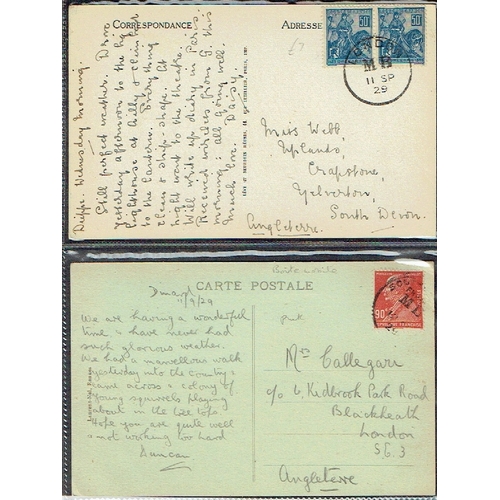 CORRESPONDANCE
ADRESSE
Dieppe. Wednesday morning.
Still perfect weather. Drove
yesterday afternoon to the big
lighthouse at Ailly & climbed
to the lantern. Everything
clean & ship-shape. At
night went to the theatre.
Will write up diary in Paris.
Received wireless from G. this
morning: all going well.
Much love. Daisy
50
50
LONDON
M B
11 SP
29
Miss Webb
Uplands,
Crapstone,
Yelverton,
South Devon.
Angleterre.
CARTE POSTALE
Boite mobile
Dinard
11/9/29
We are having a wonderful
time & have never had
such glorious weather.
We had a marvellous walk
yesterday into the country &
came across a colony of
young squirrels playing
about in the tree tops.
Hope you are quite well
& not working too hard
Duncan
90
M.L.
Callegari
c/o 4. Kidbrook Park Road
Blackheath
London
S.E.3
Angleterre